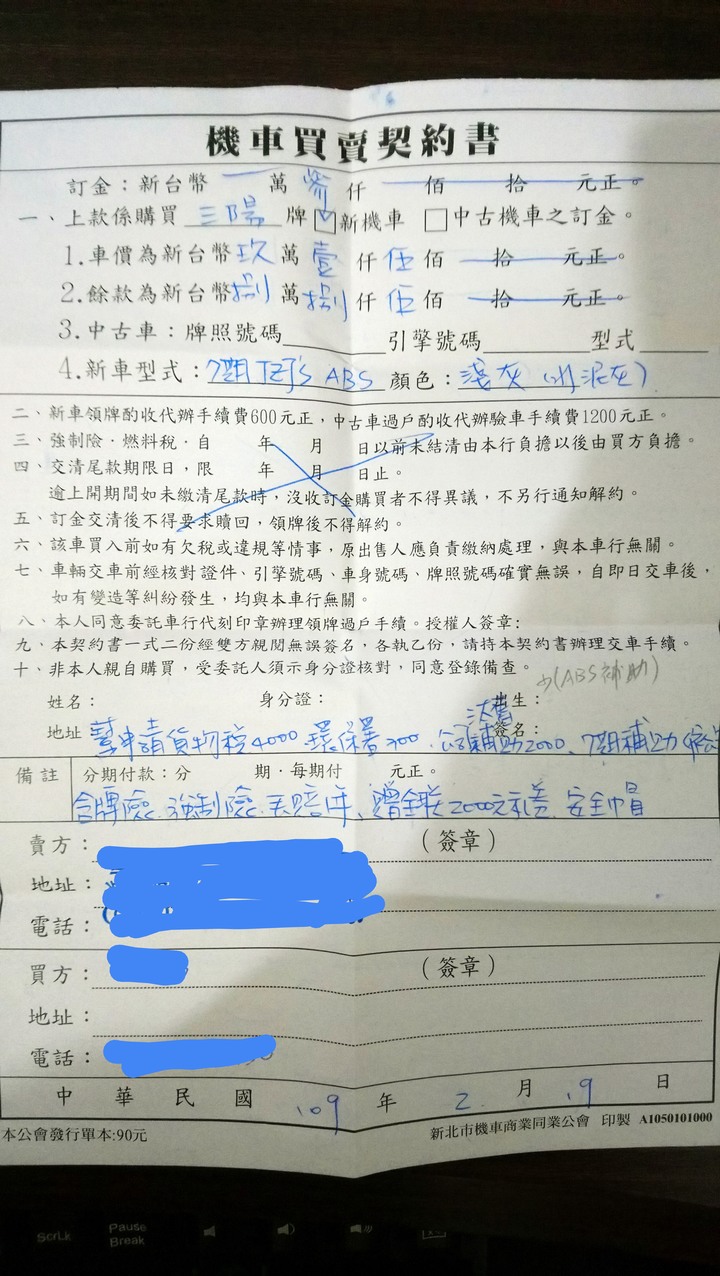 機車買賣契約書
訂金：新台幣 一 萬 參 仟 佰 拾 元正。
一、上款係購買 三陽 牌 ☑新機車 □中古機車之訂金。
1.車價為新台幣 玖 萬 壹 仟 伍 佰 拾 元正。
2.餘款為新台幣 捌 萬 捌 仟 伍 佰 拾 元正。
3.中古車：牌照號碼 引擎號碼 型式
4.新車型式：7期 JET'S ABS 顏色：淺灰(水泥灰)
二、新車領牌酌收代辦手續費600元正，中古車過戶酌收代辦驗車手續費1200元正。
三、強制險．燃料稅．自 年 月 日以前未結清由本行負擔以後由買方負擔。
四、交清尾款期限日，限 年 月 日止。
逾上開期間如未繳清尾款時，沒收訂金購買者不得異議，不另行通知解約。
五、訂金交清後不得要求贖回，領牌後不得解約。
六、該車買入前如有欠稅或違規等情事，原出售人應負責繳納處理，與本車行無關。
七、車輛交車前經核對證件、引擎號碼、車身號碼、牌照號碼確實無誤，自即日交車後，
如有變造等糾紛發生，均與本車行無關。
八、本人同意委託車行代刻印章辦理領牌過戶手續。授權人簽章：
九、本契約書一式二份經雙方親閱無誤簽名，各執乙份，請持本契約書辦理交車手續。
十、非本人親自購買，受委託人須示身分證核對，同意登錄備查。
(ABS補助)
姓名： 身分證： 出生：
汰舊
地址 簽名：
幫申請貨物稅4000、環保署300、公司補助2000、7期補助
備註 分期付款：分 期．每期付 元正。
含牌險、強制險、丟賠1年、贈全聯2000元禮卷、安全帽
賣方： （簽章）
地址：
電話：
買方： （簽章）
地址：
電話：
中華民國 109 年 2 月 19 日
本公會發行單本:90元 新北市機車商業同業公會 印製 A1050101000
ScrLk Pause Break